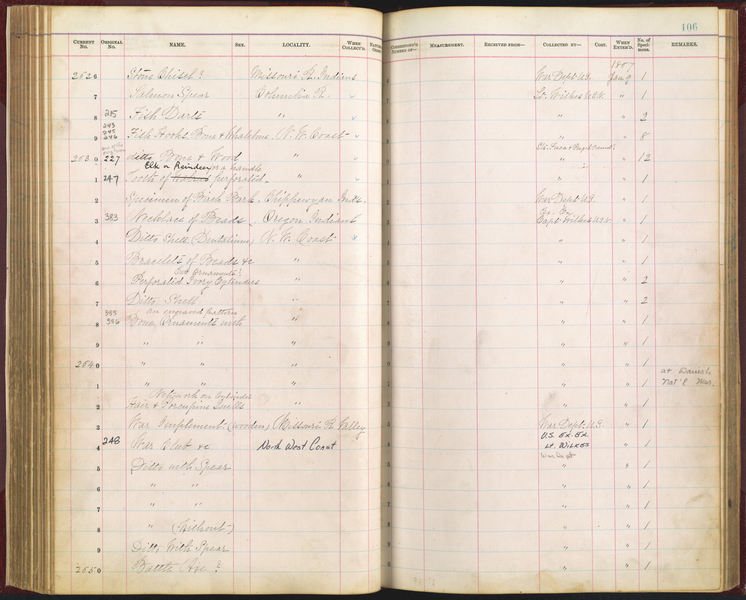 106
CURRENT No. ORIGINAL No. NAME. SEX. LOCALITY. WHEN COLLECT'D. CORRESPOND'G NUMBER OF— MEASUREMENT. RECEIVED FROM— COLLECTED BY— COST. WHEN ENTER'D. No. of Specimens. REMARKS.
2526 Stone Chisel ? Missouri R. Indians War Dept. U.S. Jan 9 1
7 Salmon Spear Columbia R. " 1
8 215 Fish Darts " " " 2
243
245
9 246 Fish Hooks, Bone & Whalebone N. W. Coast " " 8
2530 227 ditto Bone & Wood " " " 12
Elk or Reindeer for a handle
1 247 Tooth of perforated " " " 1
2 Specimen of Birch Bark Chippewyan Inds. War Dept. U.S. " 1
3 383 Necklace of Beads Oregon Indians Capt. Wilkes U.S.N. " 1
4 Ditto Shell (Dentalium) N. W. Coast " " 1
5 Bracelets of Beads &c " " " 1
Ornaments?
6 Perforated Ivory Cylinders " " " 2
7 Ditto Shell " " " 2
355 an engraved pattern
8 356 Bone Ornaments with " " " 1
9 " " " " " 1
2540 " " " " " 1
at Danish
1 " " " " " 1 Nat'l Mus.
Network on Cylinder
2 Hair & Porcupine Quills " " " 1
3 War Implement (wooden) Missouri R. Valley War Dept. U.S. " 1
U.S. Ex. Ex.
4 248 War Club &c North West Coast Lt. Wilkes " 1
War Dept
5 Ditto with Spear " " 1
6 " " " " 1
7 " " " " 1
8 " (Without) " " 1
9 Ditto With Spear " " 1
2550 Battle Axe ? " " 1